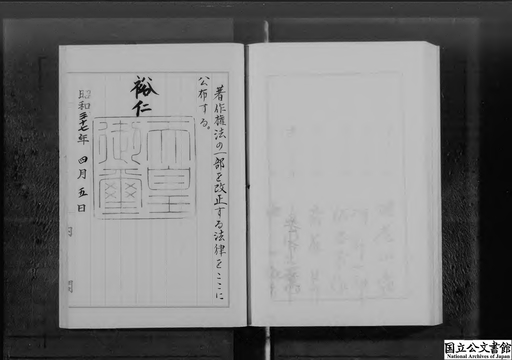 著作権法の一部を改正する法律をここに
公布する。
裕仁
天皇
御璽
昭和三十七年 四月 五日
国立公文書館
National Archives of Japan